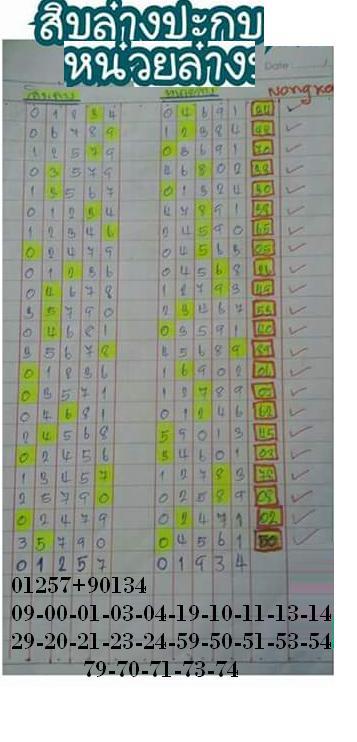 สิบล่างปะกบ
หน่วยล่าง
Date
Nongka
0 1 8 3 4 0 4 6 9 1
0 6 7 8 9 1 2 3 8 4
1 2 5 7 9 0 3 6 9 1 70
0 3 5 7 9 4 6 8 0 2
1 3 5 6 7 0 1 3 2 4 30
0 1 2 3 4 4 7 8 9 1 38
1 2 3 4 6 2 4 5 9 0 65
0 2 4 7 9 0 4 5 6 3 05
0 1 2 3 6 0 4 5 6 8
0 4 6 7 8 1 2 7 9 3
3 5 7 9 0 2 3 4 6 7 53
0 4 6 8 1 0 3 5 9 1 40
3 5 6 7 8 3 5 6 8 9 89
0 1 8 3 6 1 6 9 0 2 06
0 3 5 7 1 1 2 7 8 9
0 4 6 8 1 0 1 2 4 6 62
2 4 5 6 8 5 9 0 1 3 45
0 2 4 5 6 3 4 6 0 1 03
1 3 4 5 7 1 2 7 8 3 78
2 5 7 9 0 0 2 5 8 9 08
0 2 4 7 9 0 2 4 7 1 02
3 5 7 9 0 0 4 5 6 1 50
0 1 2 5 7 0 1 9 3 4
01257+90134
09-00-01-03-04-19-10-11-13-14
29-20-21-23-24-59-50-51-53-54
79-70-71-73-74